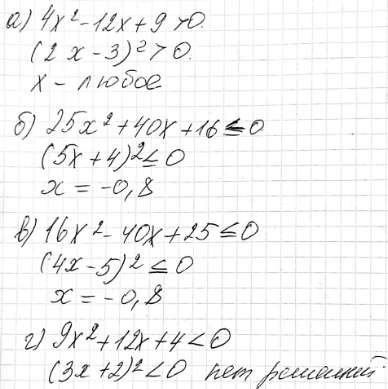 а) 4x² - 12x + 9 > 0.
(2x - 3)² > 0.
x - любое
б) 25x² + 40x + 16 ≤ 0
(5x + 4)² ≤ 0
x = -0,8
в) 16x² - 40x + 25 ≤ 0
(4x - 5)² ≤ 0
x = -0,8
г) 9x² + 12x + 4 < 0
(3x + 2)² < 0 нет решений